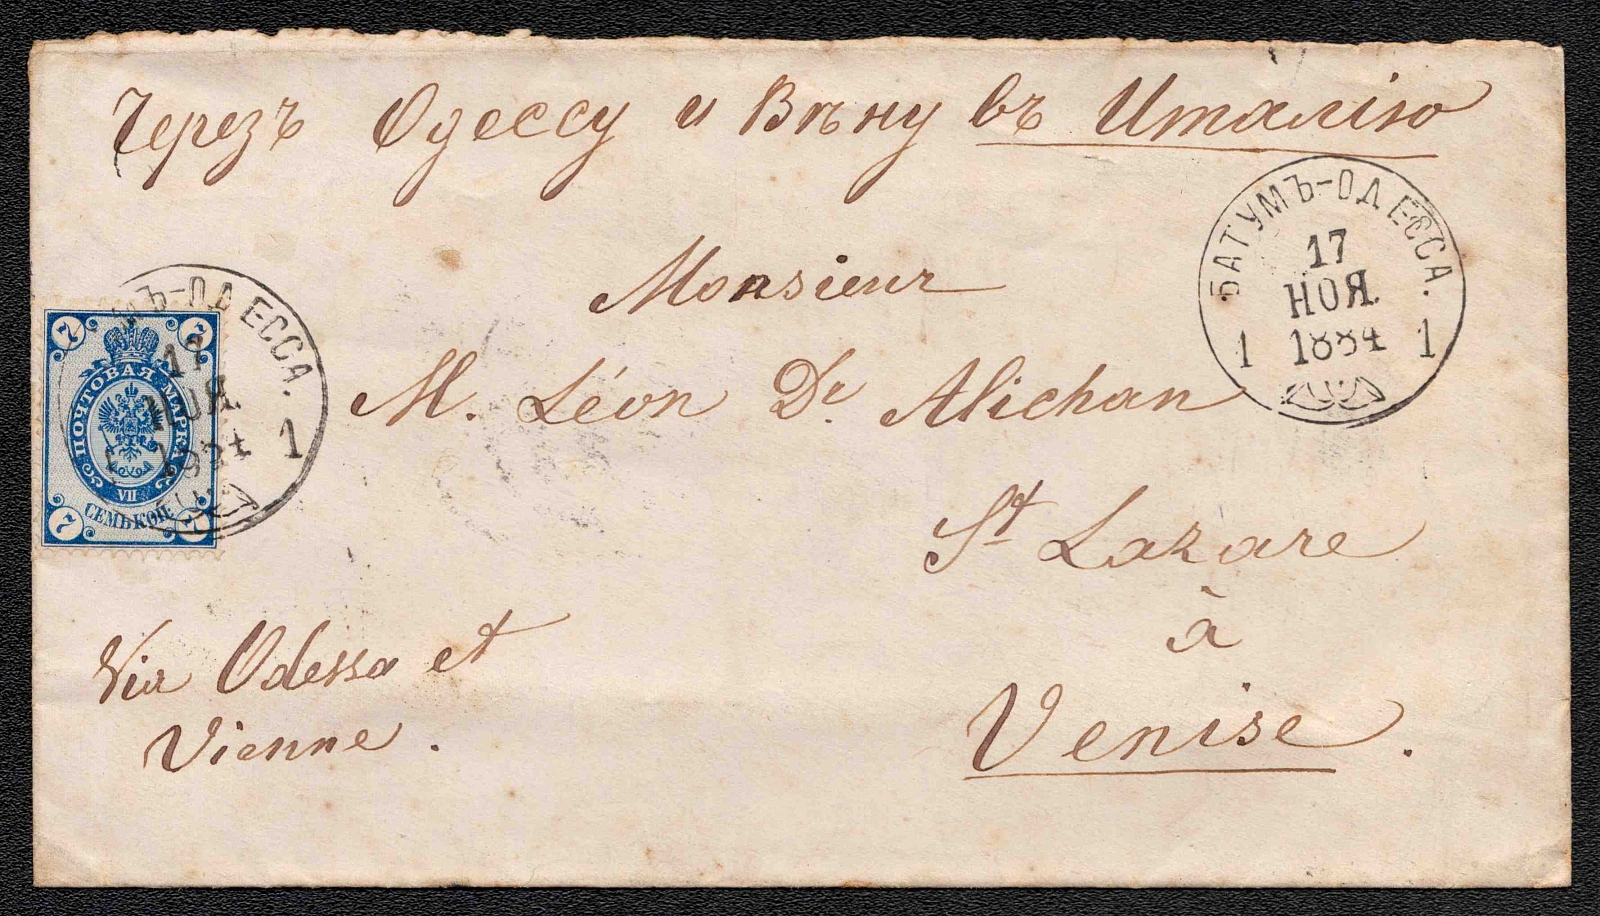 Черезъ Одессу и Вѣну въ Италію
БАТУМЪ-ОДЕССА.
17
НОЯ.
1884
1 1
Monsieur
M. Léon Dr Alichan
St Lazare
à
Venise.
Via Odessa et
Vienne.
МЪ-ОДЕССА.
17
НОЯ.
1884
1
7 7
ПОЧТОВАЯ МАРКА
VII
СЕМЬ КОП.
7 7